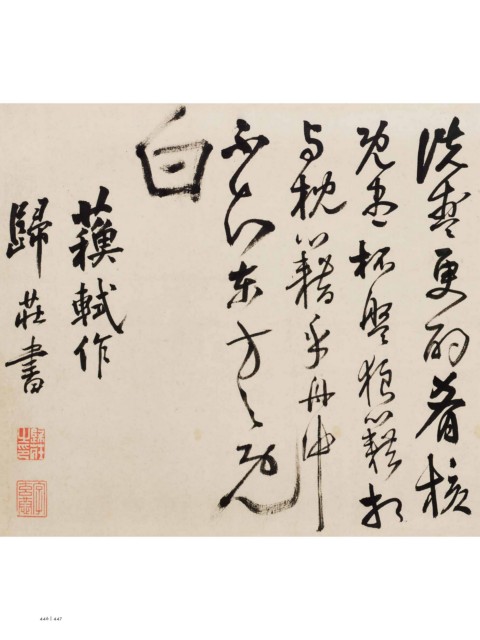 洗盞更酌肴核
既盡杯盤狼籍相
与枕籍乎舟中
不知東方之既
白
蘓軾作
歸莊書
446 | 447